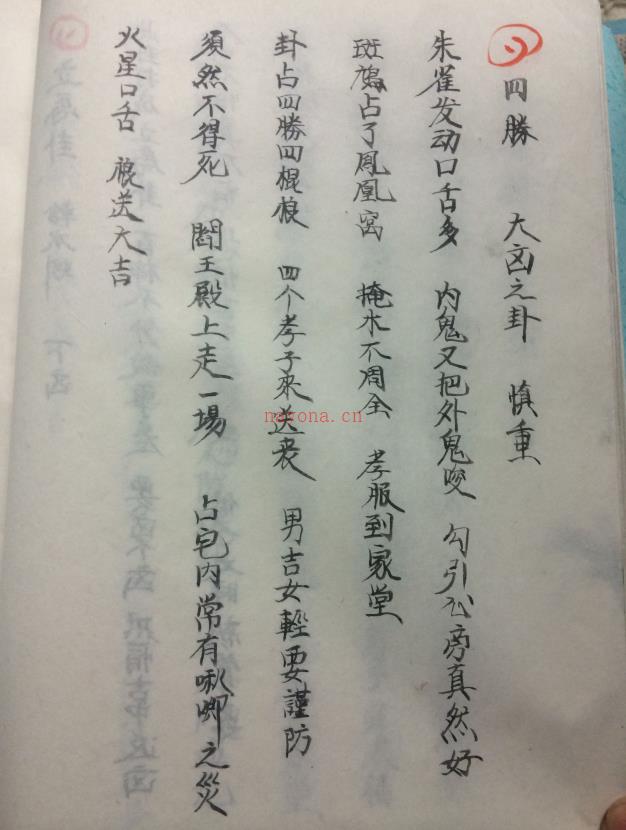 四勝 大凶之卦 慎重
朱雀发动口舌多 内鬼又把外鬼咬 勾引 旁真然好
斑鳩占了鳳凰窩 掩水不周全 孝服到家堂
卦占四勝四棍狼 四个孝子來送丧 男吉女輕要謹防
須然不得死 閻王殿上走一場 占宅内常有啾唧之災
火星口舌 送大吉
nayona.cn